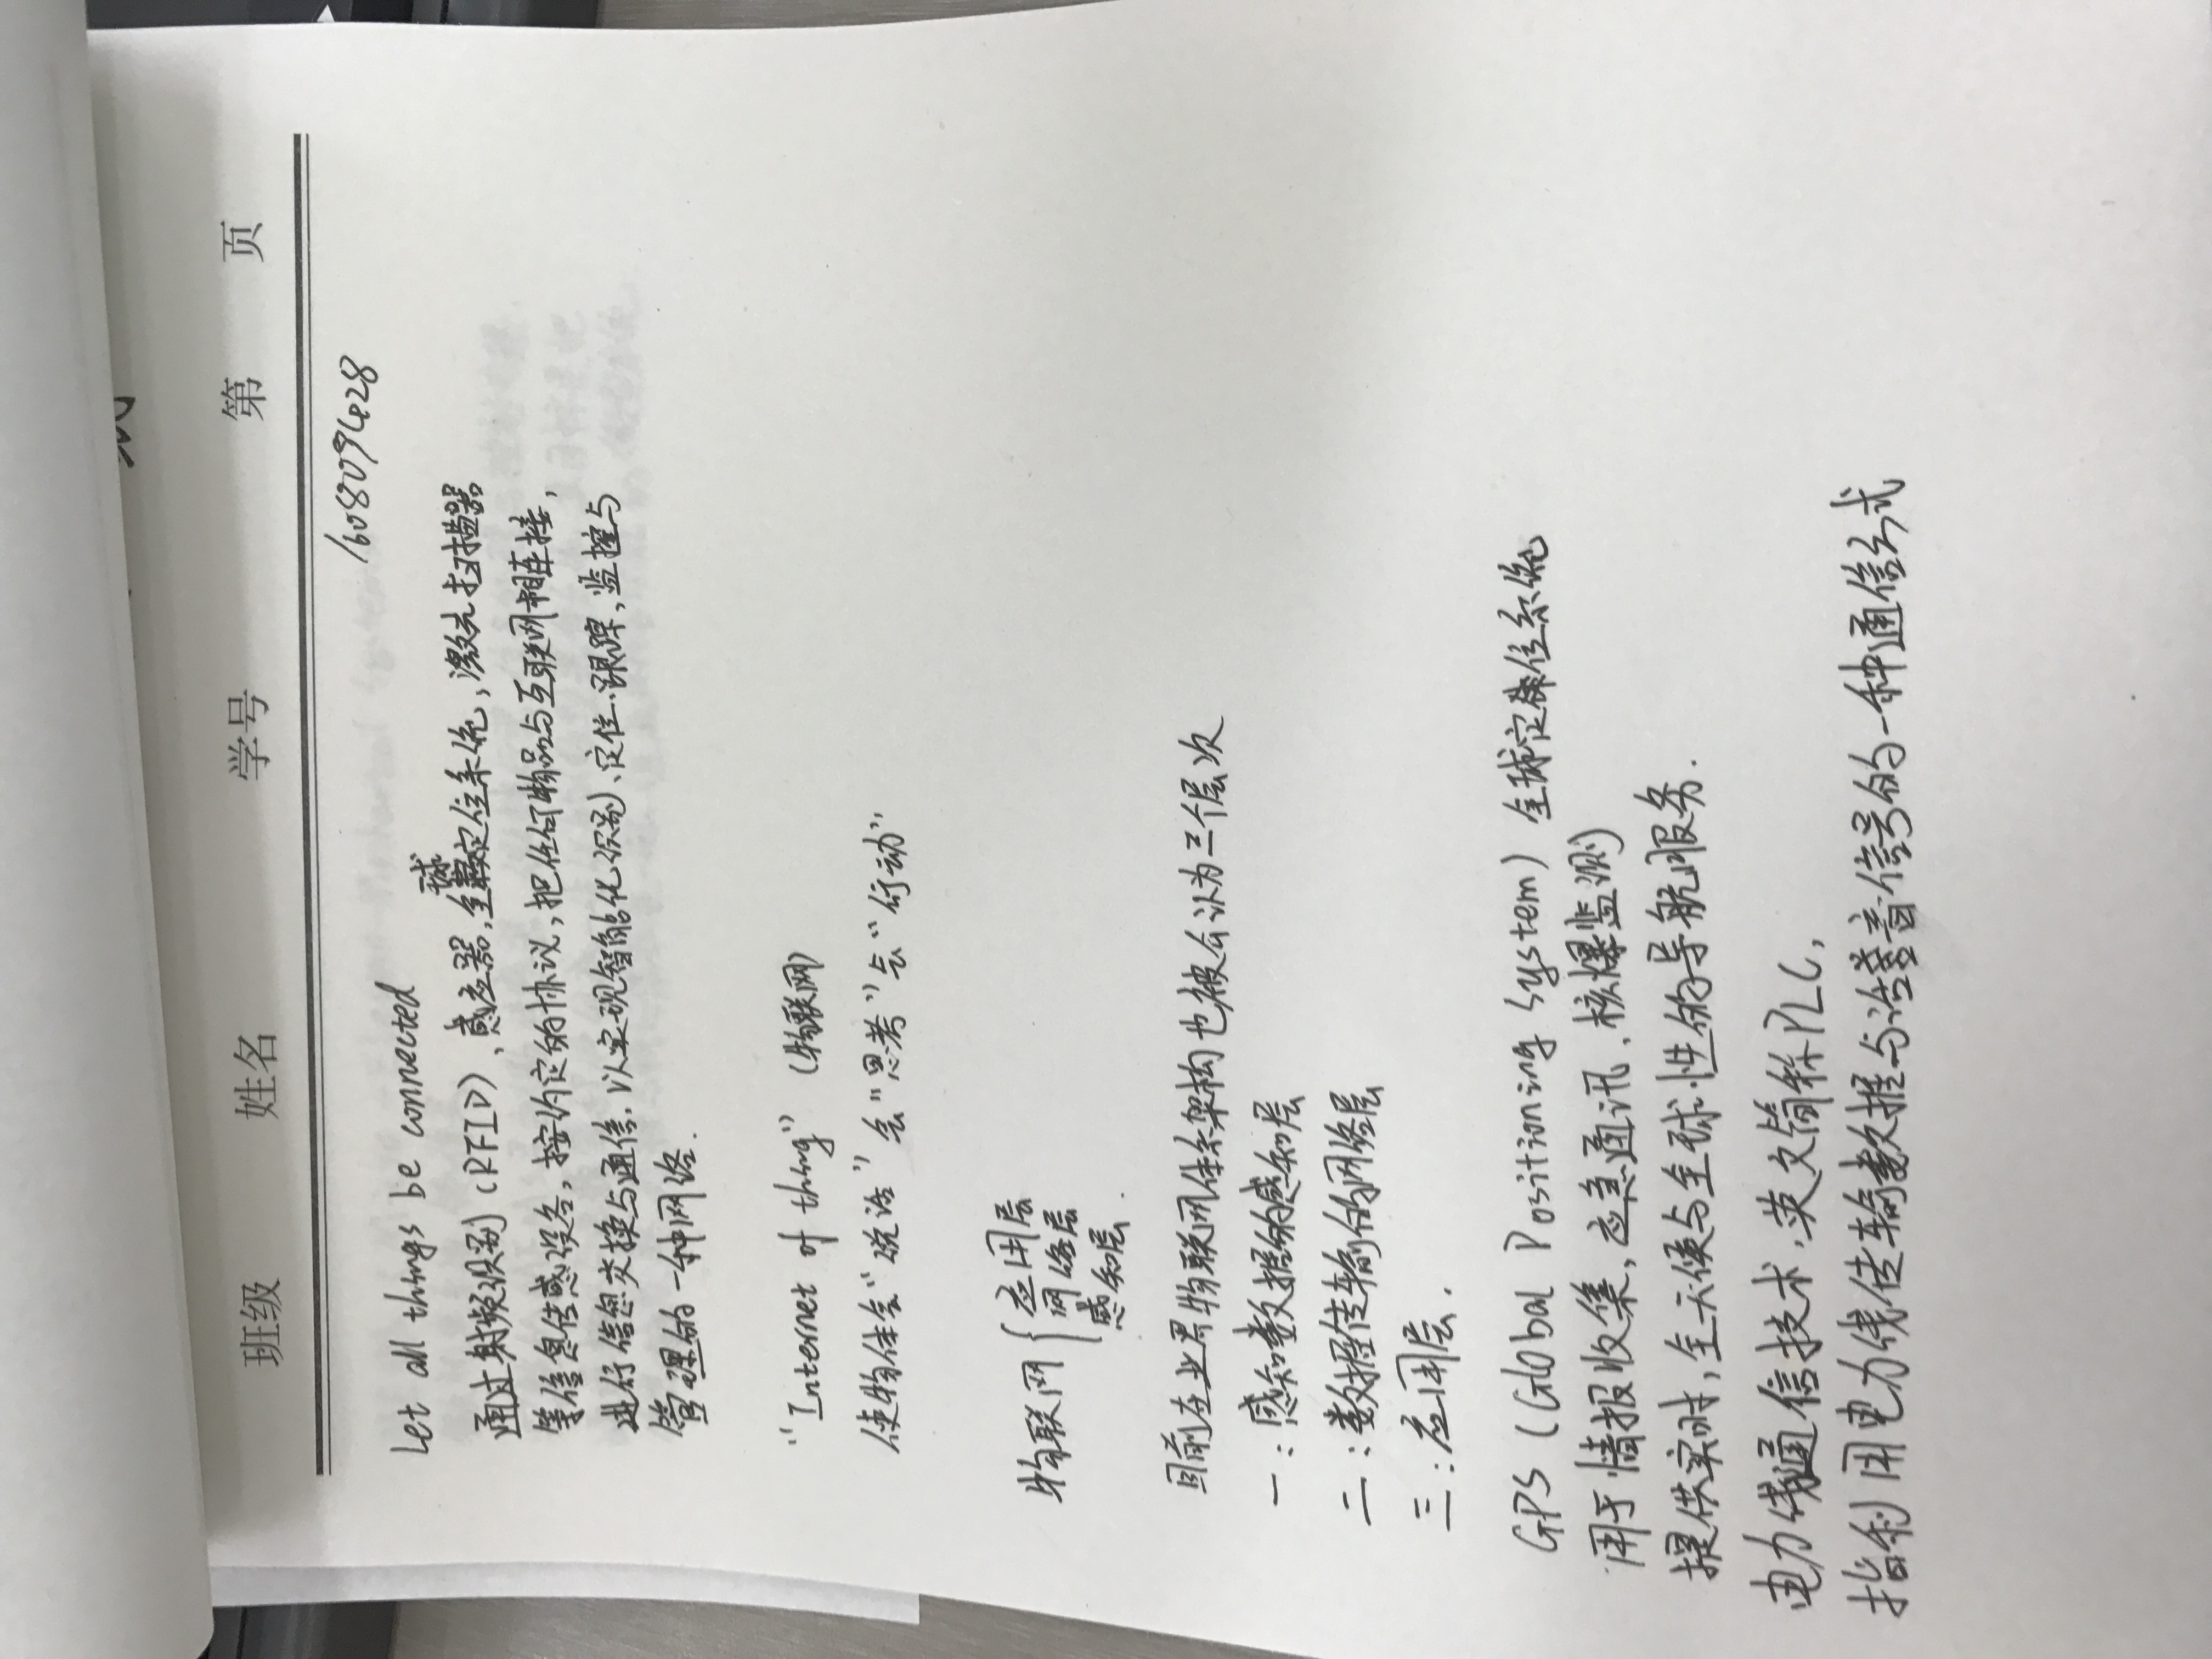 班级 姓名 学号 第 页
1608094228
Let all things be connected
通过射频识别(RFID)、感应器,全球定位系统,激光扫描器
等信息传感设备,按约定的协议,把任何物品与互联网相连接,
进行信息交换与通信,以实现智能化识别、定位、跟踪,监控与
管理的一种网络.
"Internet of thing" (物联网)
使物体会"说话"会"思考"会"行动"
物联网{应用层
网络层
感知层.
目前在业界物联网体系架构也被会认为三个层次
一:感知数据的感知层
二:数据传输的网络层
三:应用层.
GPS (Global Positioning System) 全球定位系统
用于情报收集,应急通讯,核爆监测
提供实时,全天候与全球性的导航服务.
电力线通信技术,英文简称PLC,
指利用电力线传输数据与语音信号的一种通信方式